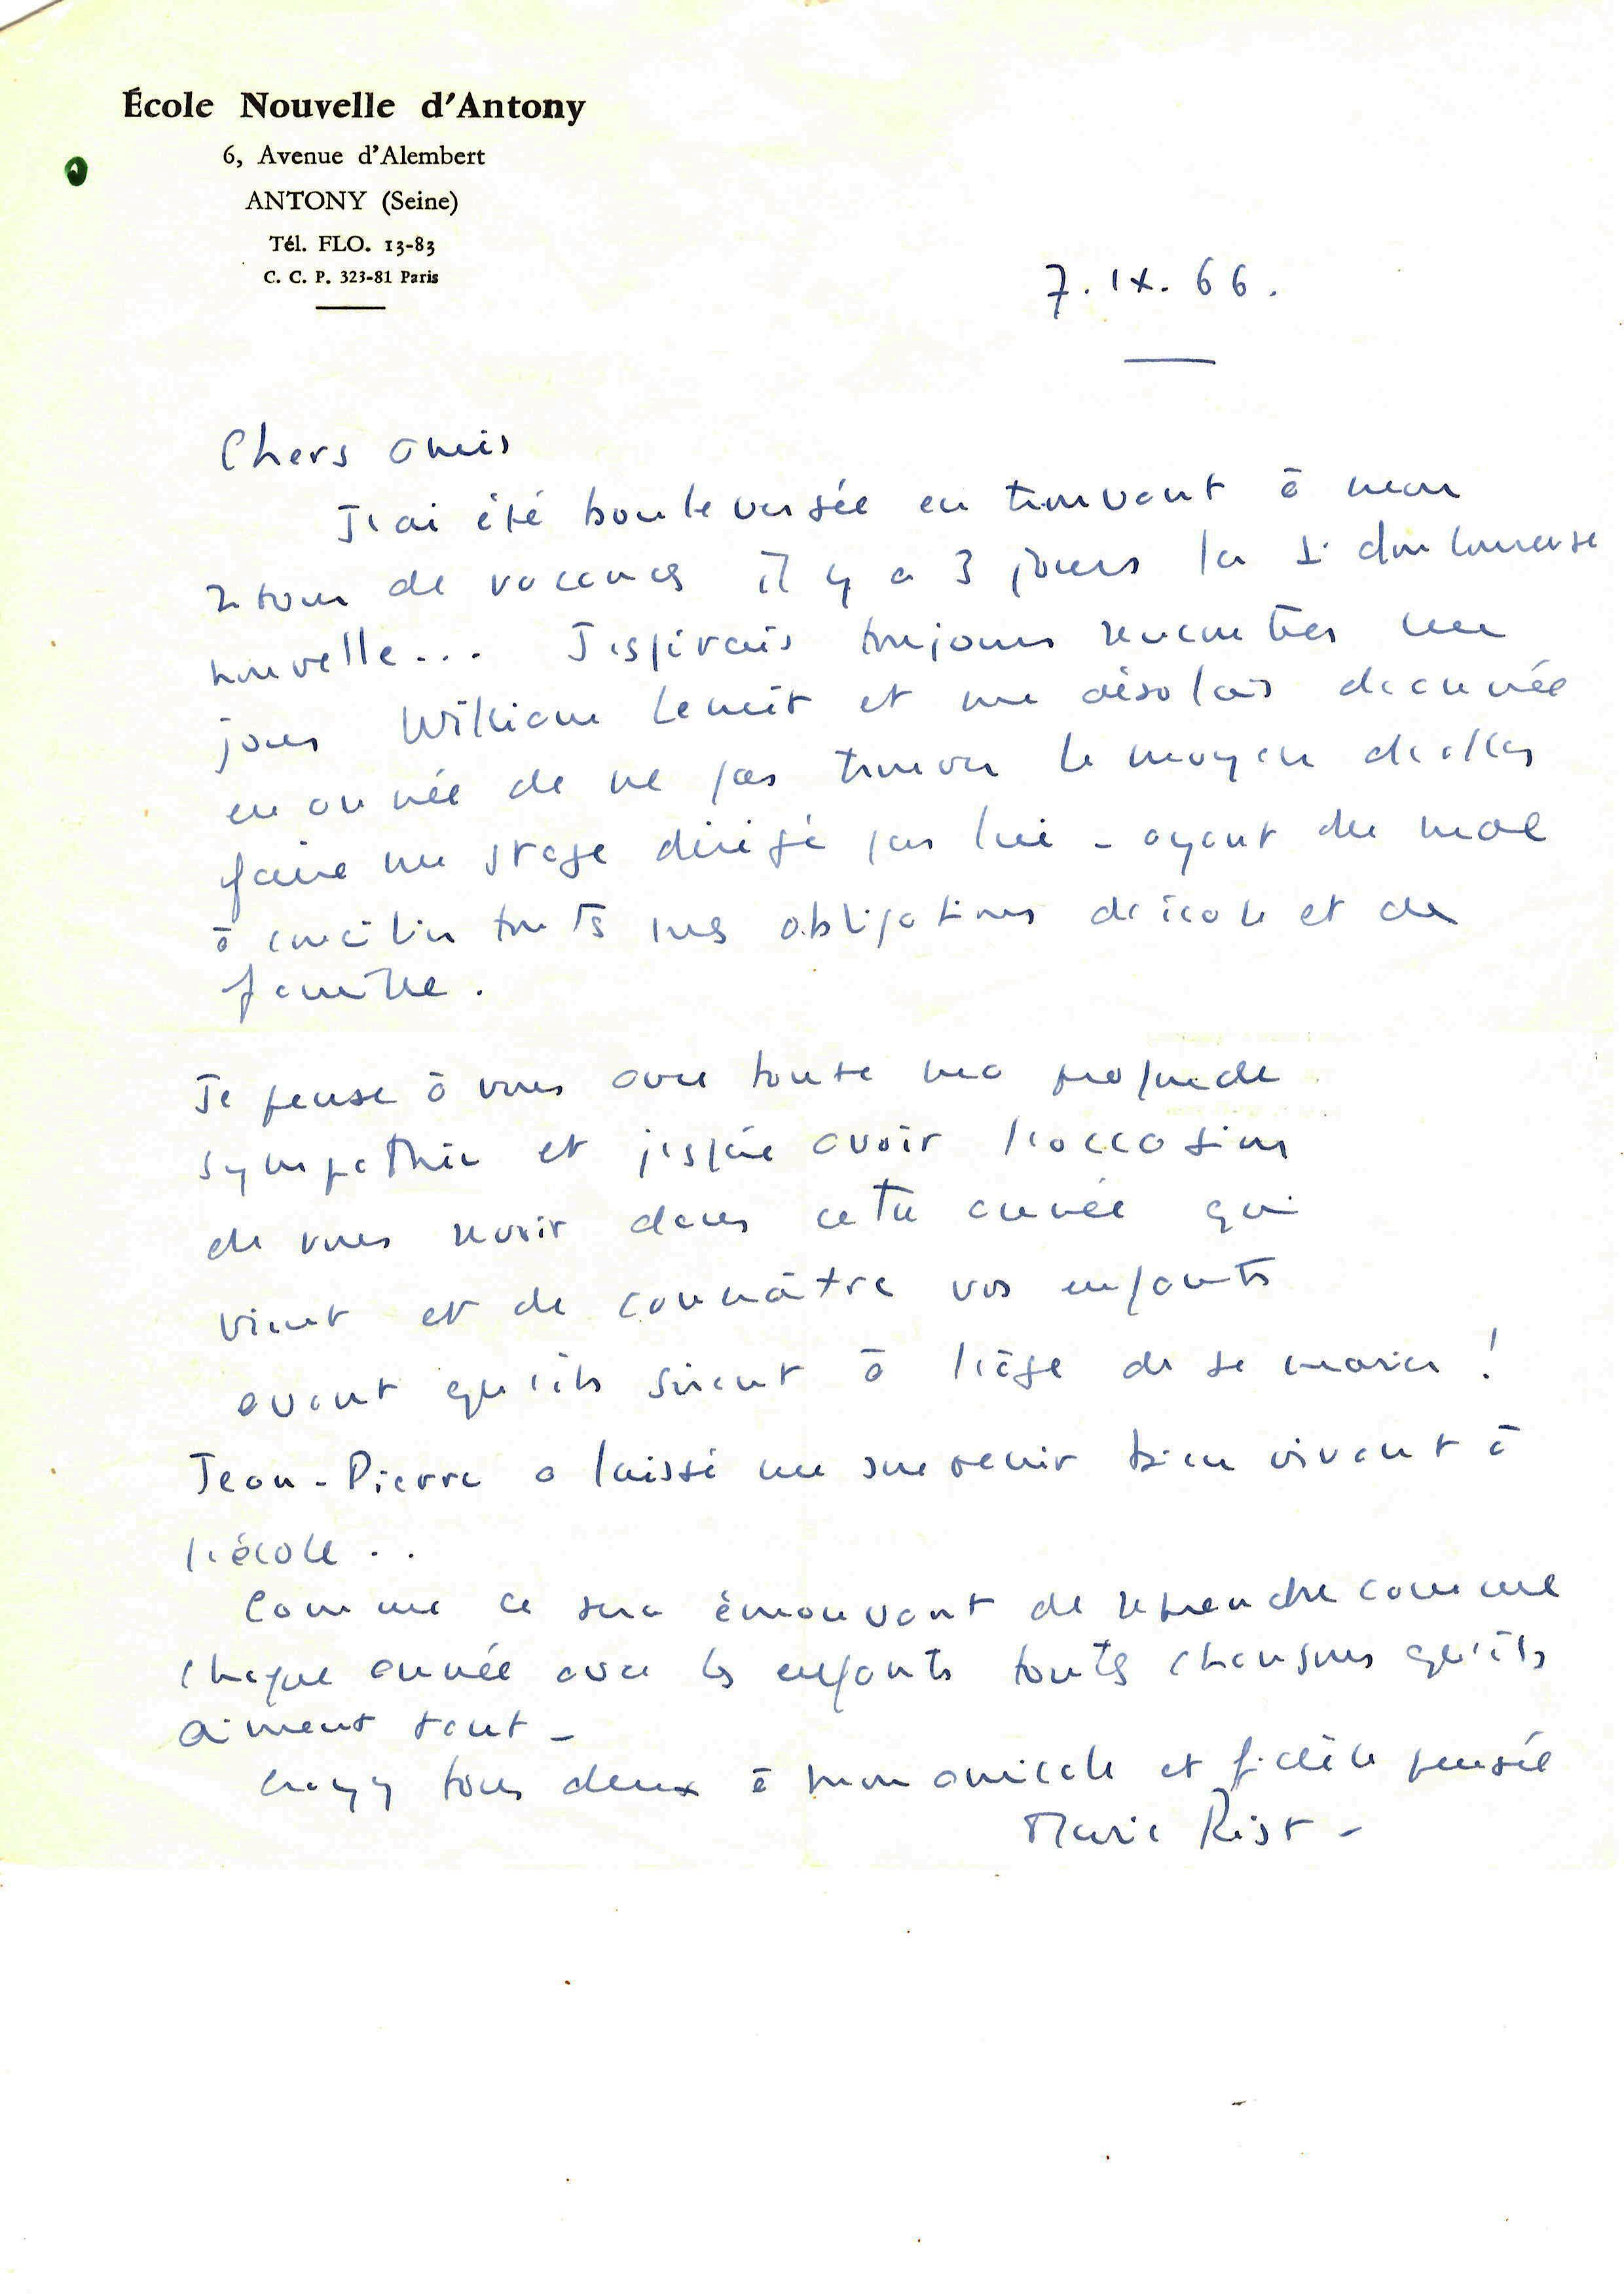 École Nouvelle d'Antony
6, Avenue d'Alembert
ANTONY (Seine)
Tél. FLO. 13-83
C. C. P. 323-81 Paris
7. IX. 66.
Chers amis
J'ai été bouleversée en trouvant à mon
retour de vacances il y a 3 jours la si douloureuse
nouvelle... J'espérais toujours rencontrer un
jour William Lemit et me désolais d'année
en année de ne pas trouver le moyen d'aller
faire un stage dirigé par lui - ayant du mal
à concilier toutes mes obligations d'école et de
famille.
Je pense à vous avec toute ma profonde
sympathie et j'espère avoir l'occasion
de vous revoir dans cette année qui
vient et de connaître vos enfants
avant qu'ils soient à l'âge de se marier !
Jean-Pierre a laissé un souvenir bien vivant à
l'école..
Comme ce sera émouvant de reprendre comme
chaque année avec les enfants toutes chansons qu'ils
aiment tant -
Croyez tous deux à mon amicale et fidèle pensée
Marie Rist -